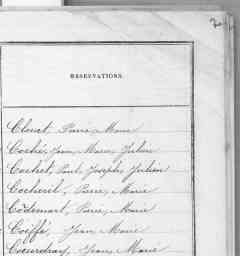 OBSERVATIONS.
Clouet, Pierre Marie
Coché, Jean, Marie, Julien
Cochet, Paul, Joseph, Julien
Cocheril, Pierre, Marie
Codemart, Pierre, Marie
Coëffé, Jean, Marie
Coeurdray, Jean, Marie